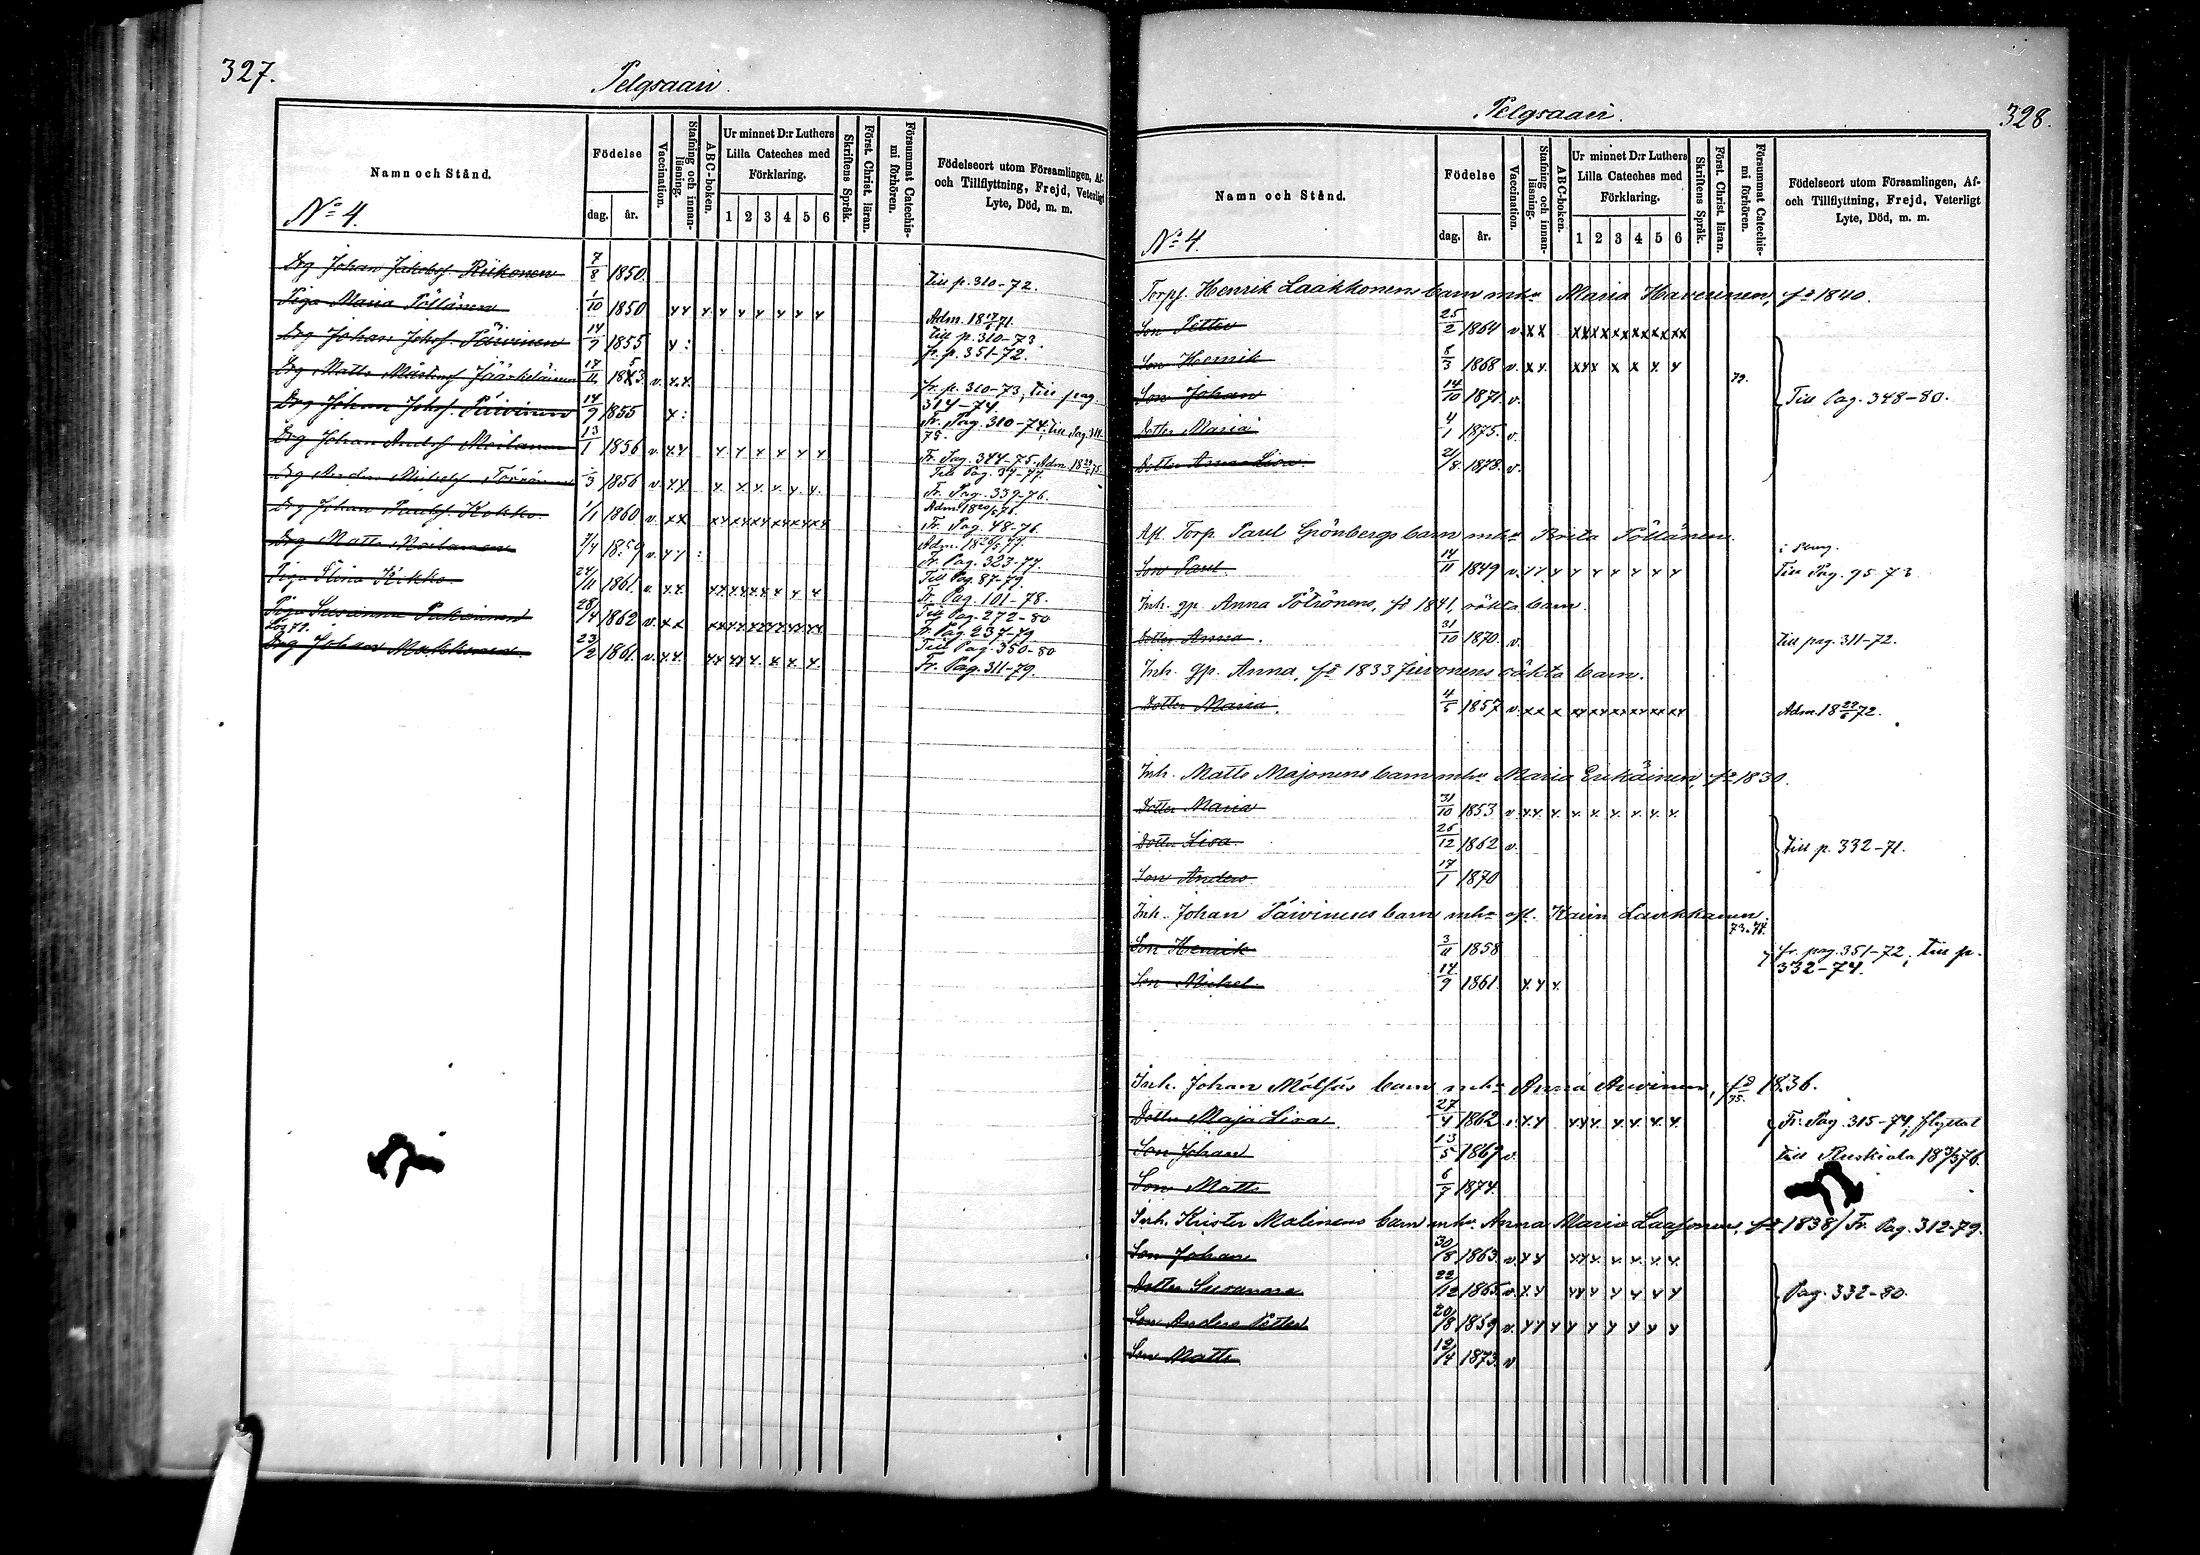 327.
Pelgsaari.
Namn och Stånd.
Födelse
dag.
år.
Vaccination.
Stafning och innan-
läsning.
ABC-boken.
Ur minnet D:r Luthers
Lilla Cateches med
Förklaring.
1 2 3 4 5 6
Skriftens Språk.
Först. Christ. läran.
Försummat Catechis-
mi förhören.
Födelseort utom Församlingen, Af-
och Tillflyttning, Frejd, Veterligt
Lyte, Död, m. m.
No 4.
Drg Johan Jakobsf. Riikonen 7/8 1850. Till p. 310-72.
Piga Maria Pöllänen 1/10 1850 Adm. 18 71.
Till p. 310-73.
Drg Johan Johsf. Päivinen 14/9 1855 fr. p. 351-72.
Drg Matts Jääskeläinen 17/11 v. fr. p. 310-73, till pag.
314-74
Drg Johan Johsf. Päivinen 14/9 1855 Fr. Pag. 310-74, Till Pag. 311
75.
Drg Johan Andsf Moilanen 13/1 1856 v. Fr. Pag. 344-75. Adm.
Till Pag. 37-77.
Drg Anders 1856 v. Fr. Pag. 339-76.
Drg Johan Paulsf. Kokko. 1/1 1860 v. Fr. Pag. 48-76.
Drg Matts Moilanen 7/4 1859 v. Fr. Pag. 323-77.
Till Pag. 87-79.
Piga Stina Kokko. 24/11 1861. v. Fr. Pag. 101-78.
Till Pag. 272-80
Piga Susanna Pakarinen 28/4 1862 v. Fr. Pag 237-79
Till Pag. 350-80
Drg Johan Makkonen. 23/2 1861. v. Fr. Pag. 311-79.
Pelgsaari.
328.
Namn och Stånd.
Födelse
dag.
år.
Vaccination.
Stafning och innan-
läsning.
ABC-boken.
Ur minnet D:r Luthers
Lilla Cateches med
Förklaring.
1 2 3 4 5 6
Skriftens Språk.
Först. Christ. läran.
Försummat Catechis-
mi förhören.
Födelseort utom Församlingen, Af-
och Tillflyttning, Frejd, Veterligt
Lyte, Död, m. m.
No 4.
Torpf. Henrik Laakkonens barn mhu Maria Haverinen, fd 1840.
Son Petter 25/2 1864 v.
Son Henrik 8/3 1868 v. 79.
Son Johan 14/10 1871. v. Till Pag. 348-80.
Dotter Maria 4/1 1875. v.
Dotter Anna Lisa. 21/8 1878. v.
Afl. Torp. Paul Grönbergs barn mhu Brita Pöllänen.
Son Paul. 14/11 1849 v. Till Pag. 95-73
Inh. gp. Anna Pötrönens, fd 1841, oäkta barn.
Dotter Anna. 31/10 1870. v. Till pag. 311-72.
Inh. gp. Anna, fd 1833 Juvonens oäkta barn.
Dotter Maria. 4/5 1857 v. Adm. 18 22/6 72.
Inh. Matts Majonens barn mhu Maria Erikäinen, fd 1830.
Dotter Maria 31/10 1853 v.
Dotter Lisa. 26/12 1862 v. Till p. 332-71.
Son Anders 17/1 1870
Inh. Johan Päivinens barn mhu afl. Karin Laukkanen.
73. 74.
Son Henrik 3/11 1858 fr. pag. 351-72, till p.
332-74.
Son Mikel. 14/9 1861
Inh. Johan Mölsäs barn mhu Anna Auvinen, fd 1836.
75.
Dotter Maja Lisa. 27/4 1862 v. Fr. Pag. 315-74, flyttat
Son Johan 13/5 1867 v. till Ruskiala 76.
Son Matts 6/7 1874.
Inh. Krister Malinens barn mhu Anna Maria Laasonen, fd 1838/ Fr. Pag. 312-79.
Son Johan 30/8 1863. v.
Dotter Susanna 22/12 1865. v. Pag. 332-80.
Son Anders Petter 20/8 1859 v.
Son Matts 12/4 1873. v